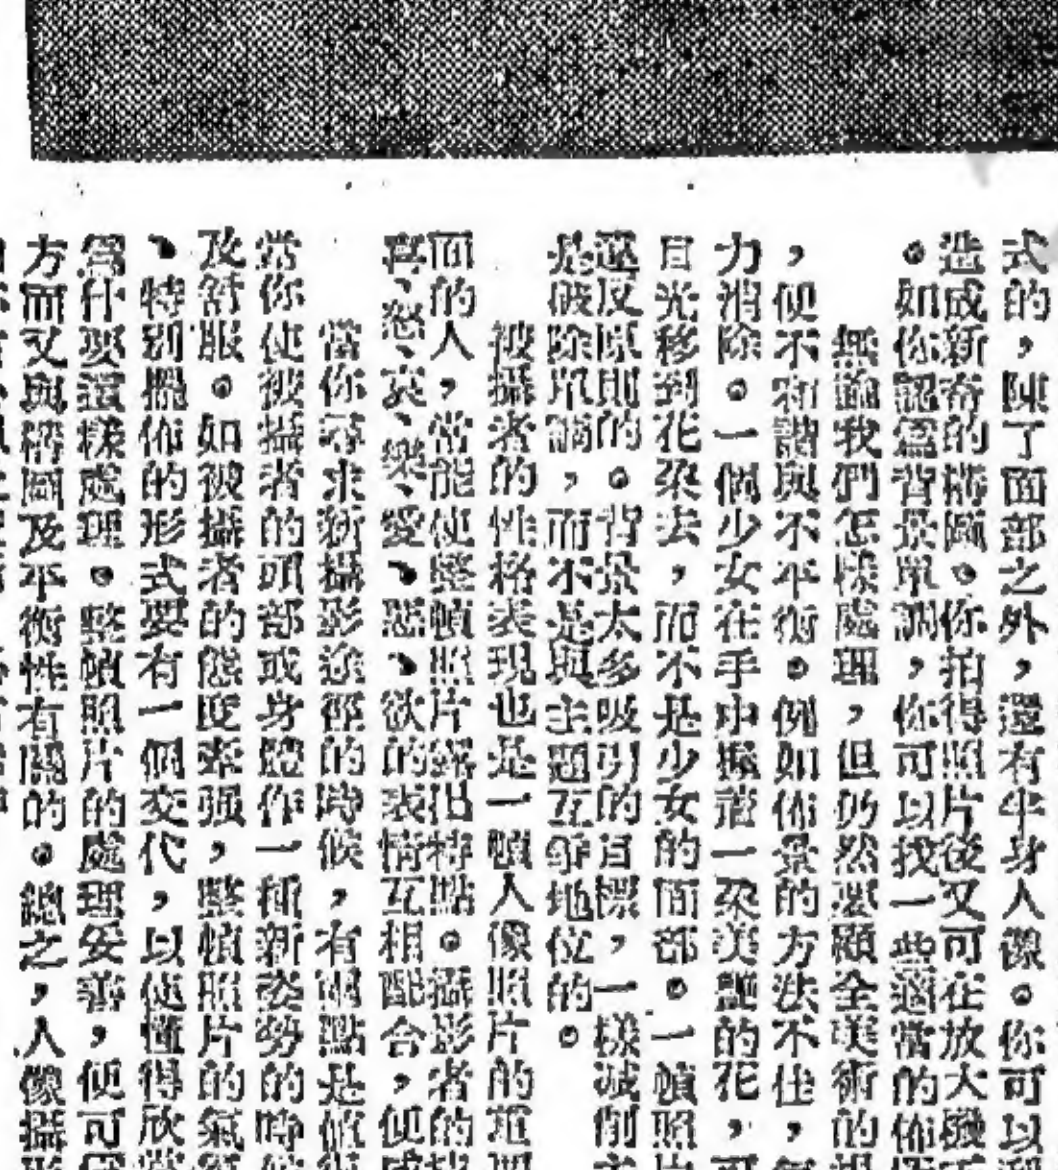 式的，陳了面部之外，還有半身人像。你可以
造成新奇的構圖。你拍得照片後又可在放大機
。如你認爲背景單調，你可以找一些適當的佈
無論我們怎樣處理，但仍然要顧全美術的
，便不和諧與不平衡。例如佈景的方法不佳，
力消除。一個少女在手中握着一朶美艷的花，可
目光移到花朶去，而不是少女的面部。一幀照片
違反原則的。背景太多吸引的目標，一樣減削主
是破除單調，而不是與主題互爭地位的。
被攝者的性格表現也是一幀人像照片的
面的人，當能使整幀照片露出特點。攝影者的技
喜、怒、哀、樂、愛、惡、欲的表情互相配合，便
當你尋求新攝影途徑的時候，有兩點是值得
當你使被攝者的頭部或身體作一種新姿勢的時候
及舒服。如被攝者的態度牽强，整幀照片的氣
、特別攝佈的形式要有一個交代，以使懂得欣賞
爲什麼這樣處理。整幀照片的處理妥善，便可
方面又與構圖及平衡性有關的。總之，人像攝影